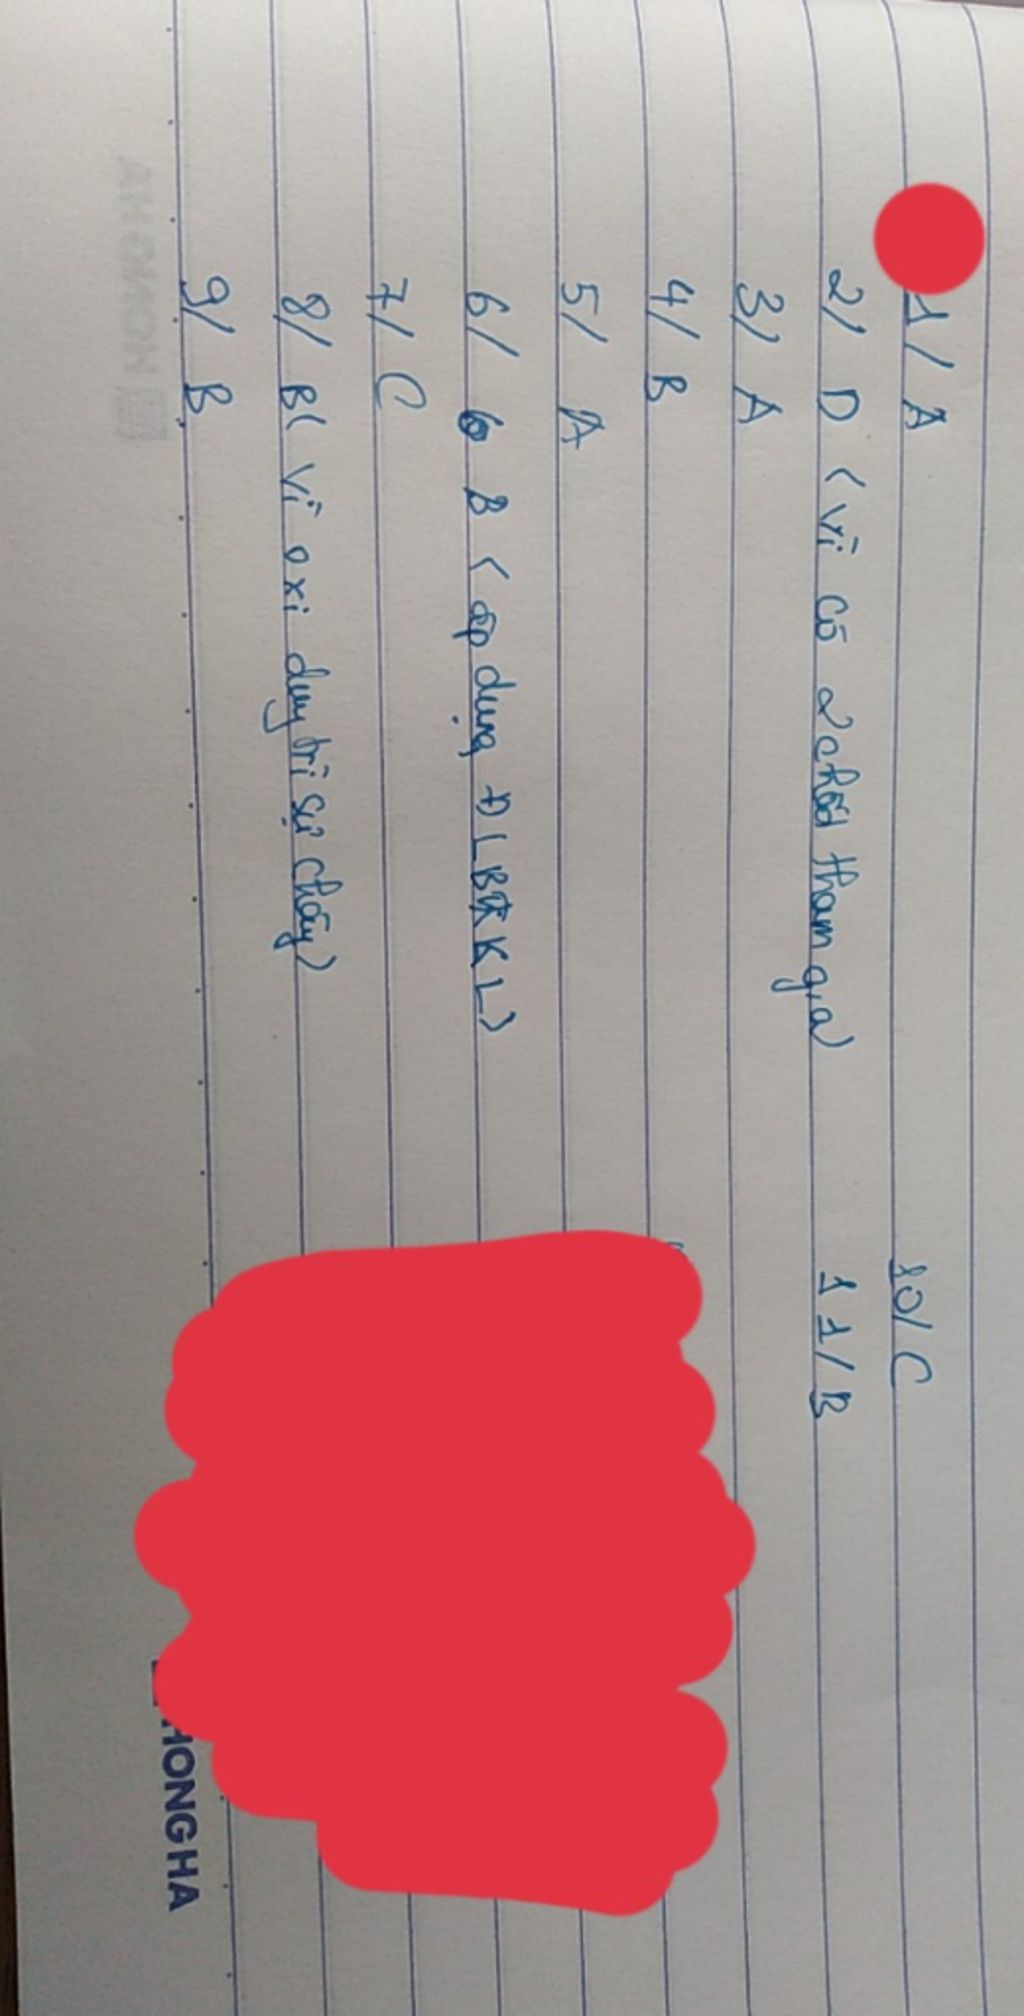 1/ A
2/ D (vì có 2 chất tham gia)
3/ A
4/ B
5/ A
6/ B (áp dụng ĐLBTKL)
7/ C
8/ B( Vì oxi duy trì sự cháy)
9/ B
10/ C
11/ B
HONG HA